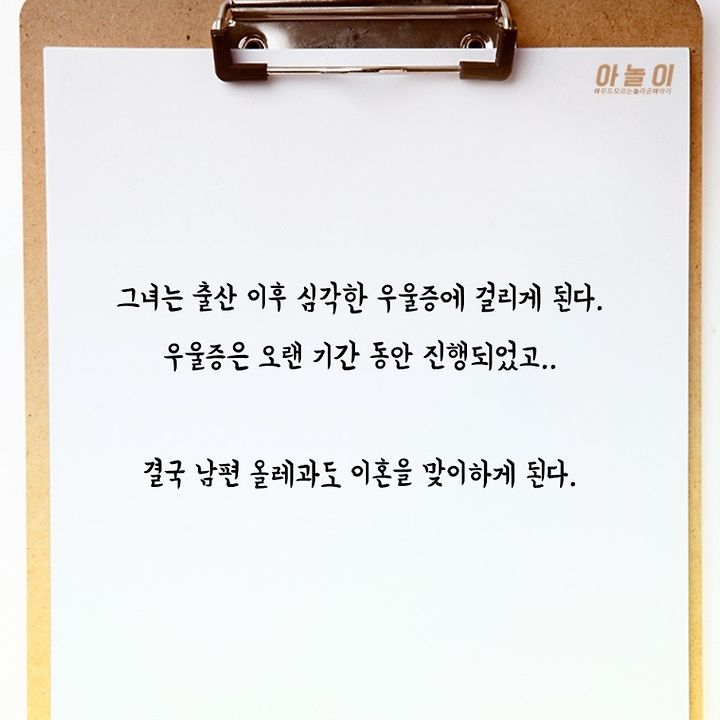 아놀이
아무도모르는놀라운이야기
그녀는 출산 이후 심각한 우울증에 걸리게 된다.
우울증은 오랜 기간 동안 진행되었고..
결국 남편 올레과도 이혼을 맞이하게 된다.